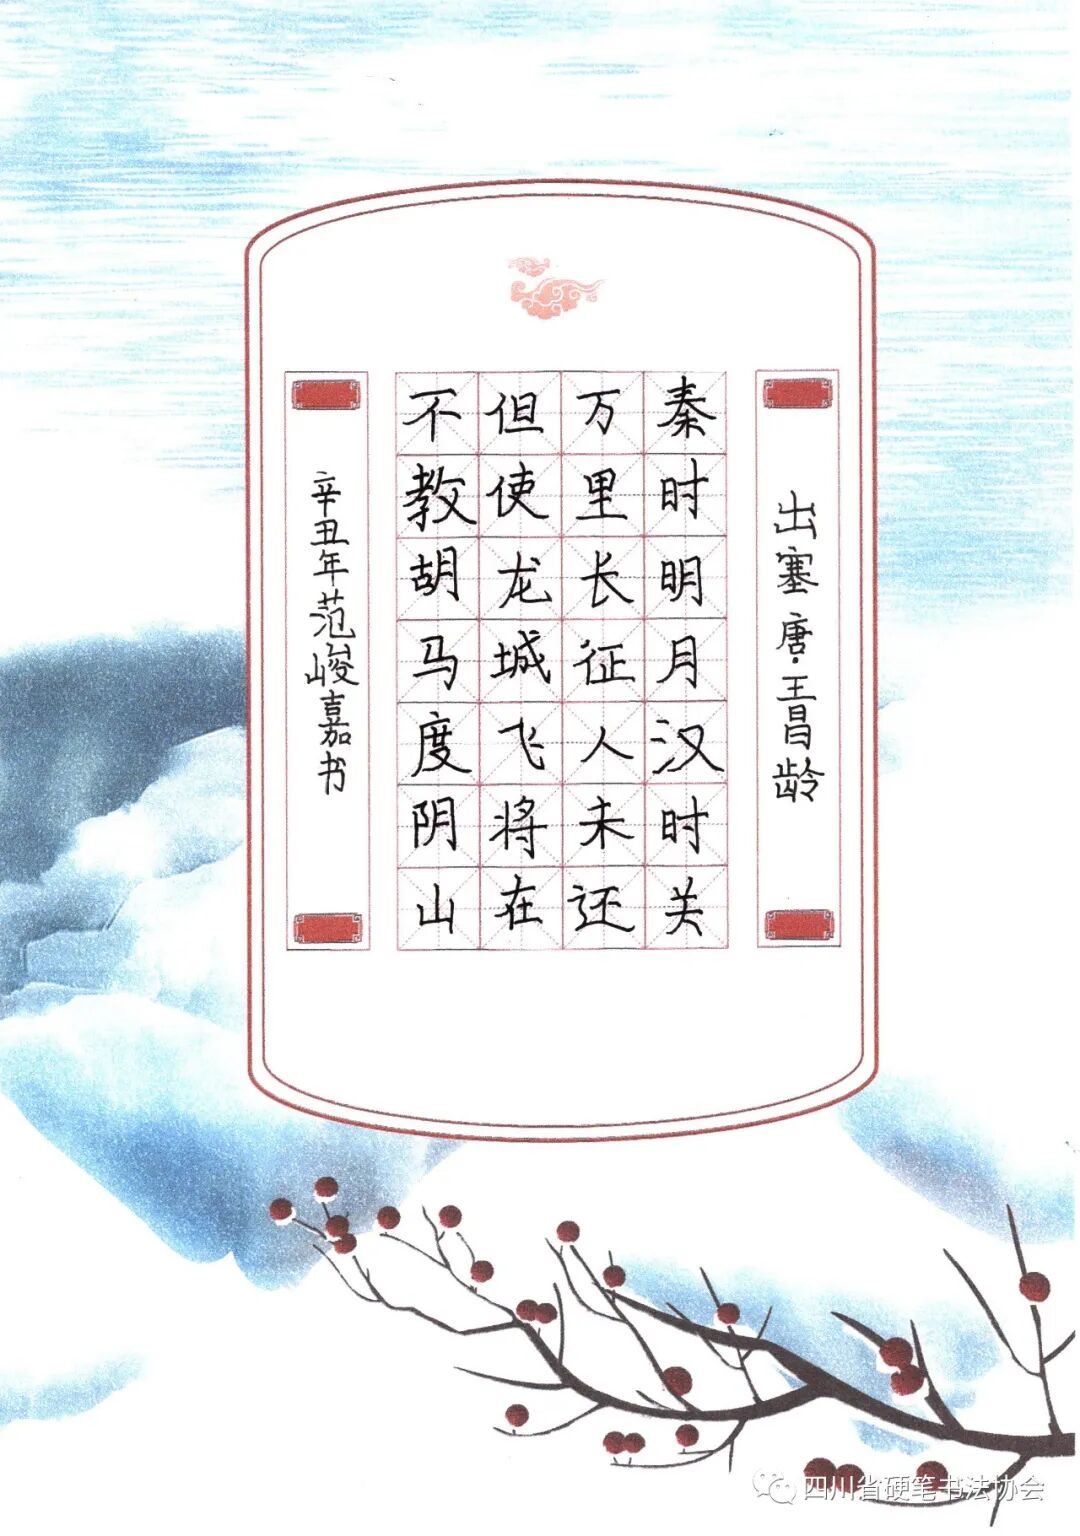 出塞 唐·王昌龄
秦时明月汉时关
万里长征人未还
但使龙城飞将在
不教胡马度阴山
辛丑年范峻嘉书
四川省硬笔书法协会